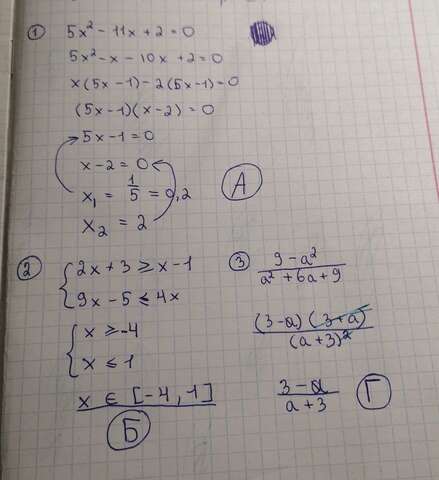 ① 5x² - 11x + 2 = 0
5x² - x - 10x + 2 = 0
x(5x - 1) - 2(5x - 1) = 0
(5x - 1)(x - 2) = 0
5x - 1 = 0
x - 2 = 0
x₁ = 1/5 = 0,2
x₂ = 2
А
② { 2x + 3 ≥ x - 1
9x - 5 ≤ 4x
{ x ≥ -4
x ≤ 1
x ∈ [-4, 1]
Б
③ (9 - a²)/(a² + 6a + 9)
(3 - a)(3 + a)/(a + 3)²
(3 - a)/(a + 3)
Г